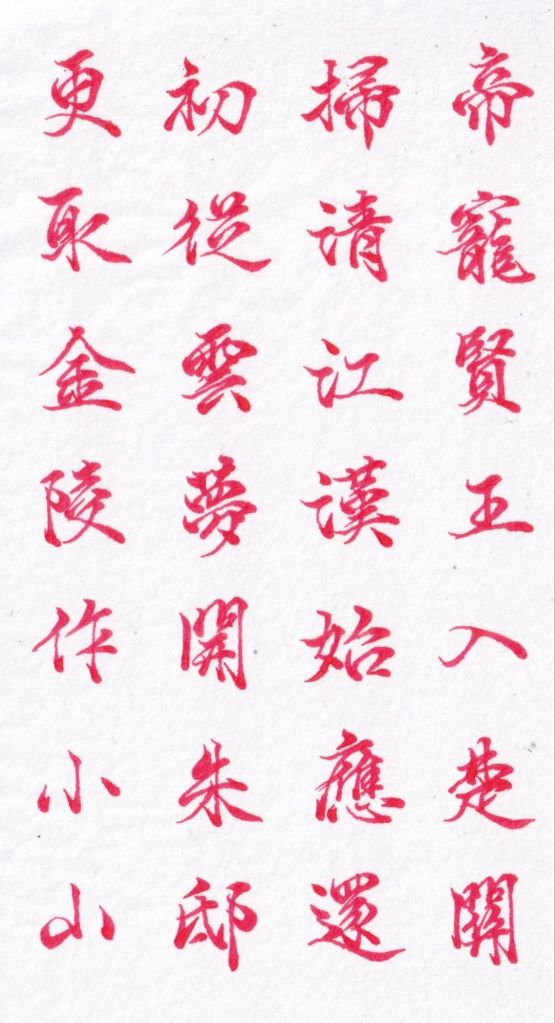 帝寵賢王入楚關
掃清江漢始應還
初從雲夢開朱邸
更取金陵作小山